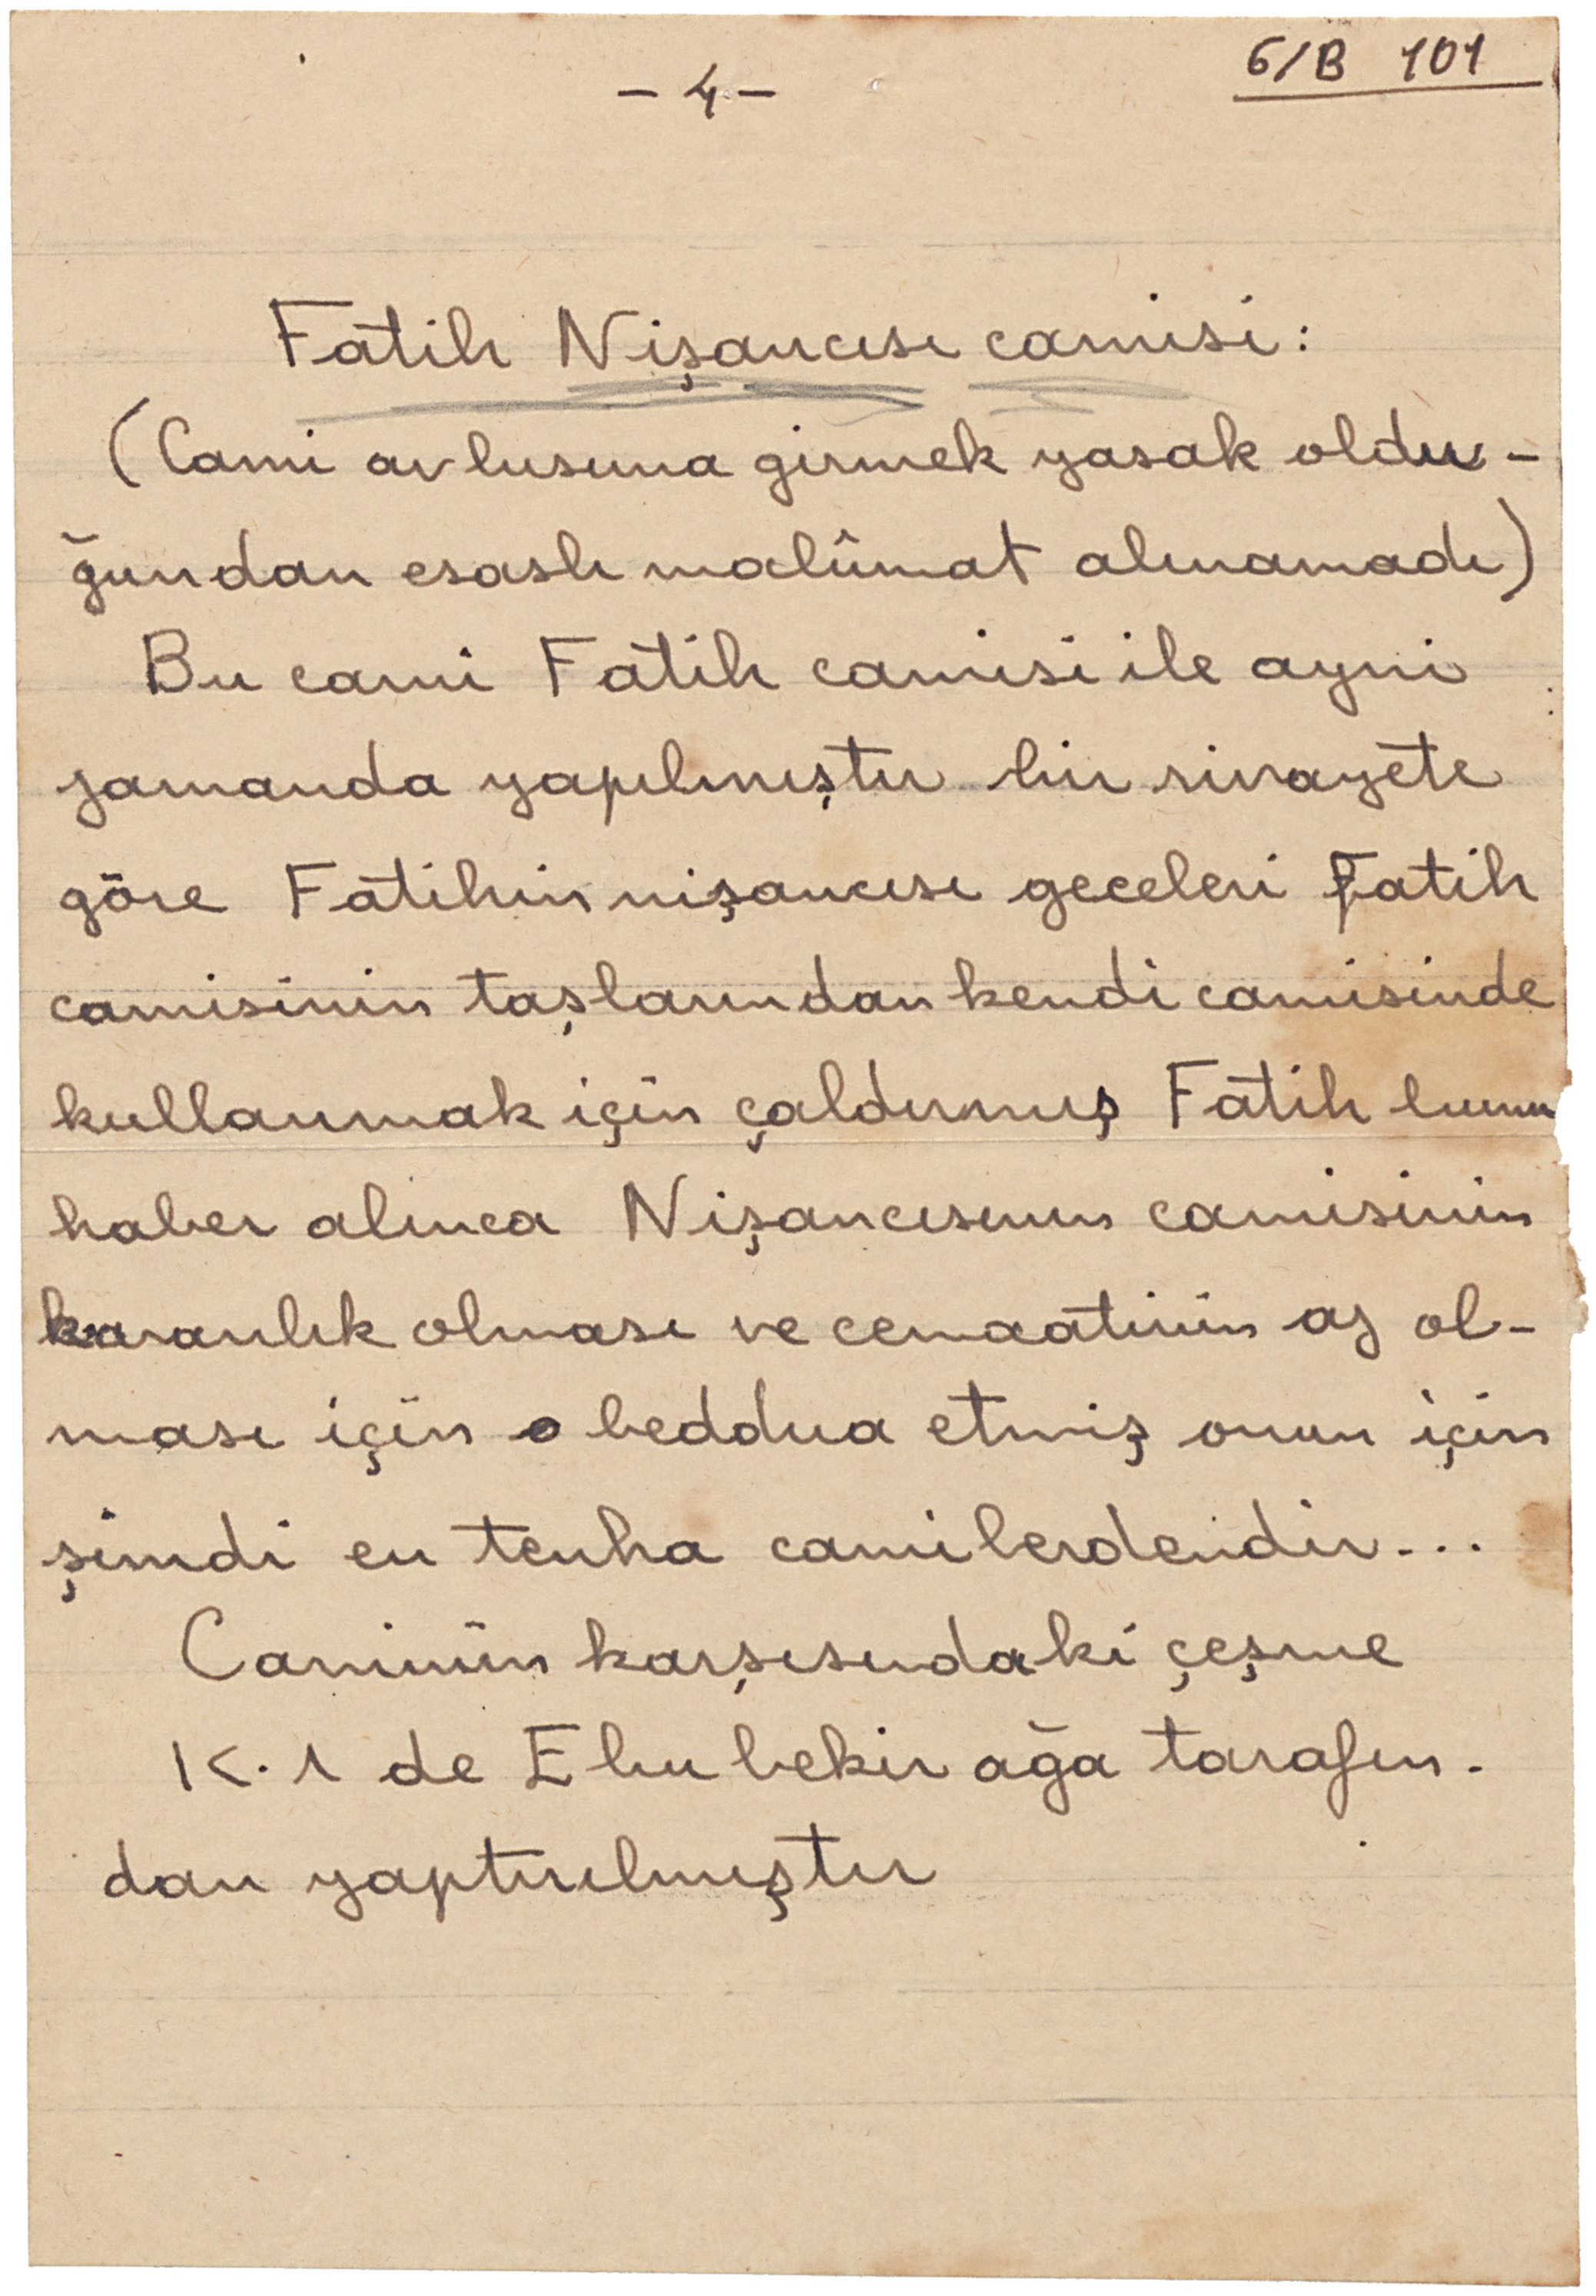 6/B 101
- 4 -
Fatih Nişancısı camisi:
(Cami avlusuna girmek yasak oldu-
ğundan esaslı malûmat alınamadı)
Bu cami Fatih camisi ile ayni
zamanda yapılmıştır bir rivayete
göre Fatihin nişancısı geceleri Fatih
camisinin taşlarından kendi camisinde
kullanmak için çaldırmış Fatih bunu
haber alınca Nişancısının camisinin
karanlık olması ve cemaatinin az ol-
ması için o beddua etmiş onun için
şimdi en tenha camilerdendir...
Caminin karşısındaki çeşme
K. 1 de Ebu bekir ağa tarafın-
dan yaptırılmıştır